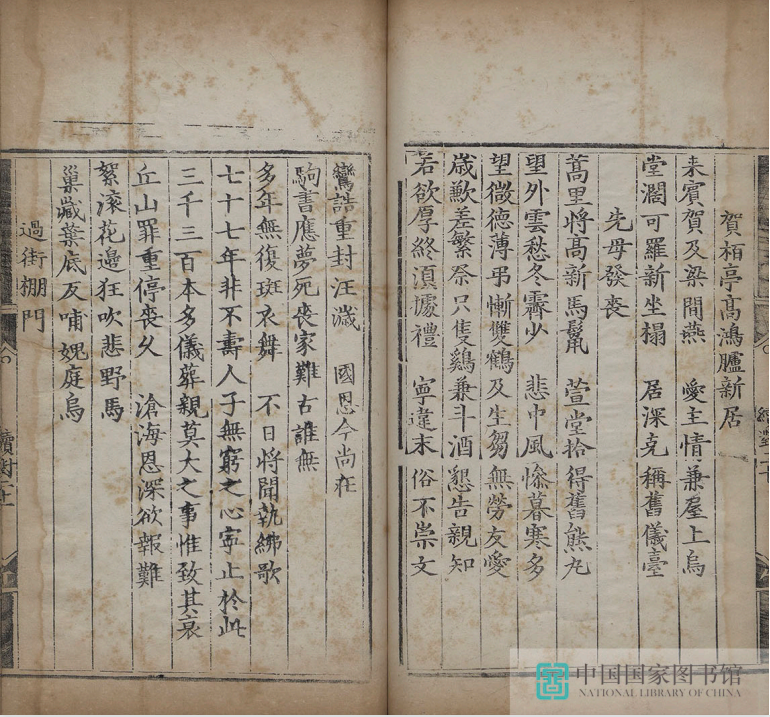 賀栢亭高鴻臚新居
来賓賀及梁間燕 愛主情兼屋上烏
堂濶可羅新坐榻 居深克稱舊儀臺
先母發丧
蒿里將髙新馬鬣 萱堂拾得舊熊丸
望外雲愁冬霽少 悲中風慘暮寒多
望微德薄弔慚雙鶴及生芻 無勞友愛
歳歉差繁祭只隻鷄兼斗酒 懇告親知
若欲厚終湏據禮 寧違末俗不崇文
鸞誥重封汪濊 國恩今尚在
駒書應夢死丧家難古誰無
多年無復斑衣舞 不日將聞執綍歌
七十七年非不壽人子無窮之心寧止於此
三千三百本多儀葬親莫大之事惟致其哀
丘山罪重停丧久 滄海恩深欲報難
絮滚花邉狂吹悲野馬
巢藏葉底反哺媿庭烏
過街棚門
中国国家图书馆
NATIONAL LIBRARY OF CHINA